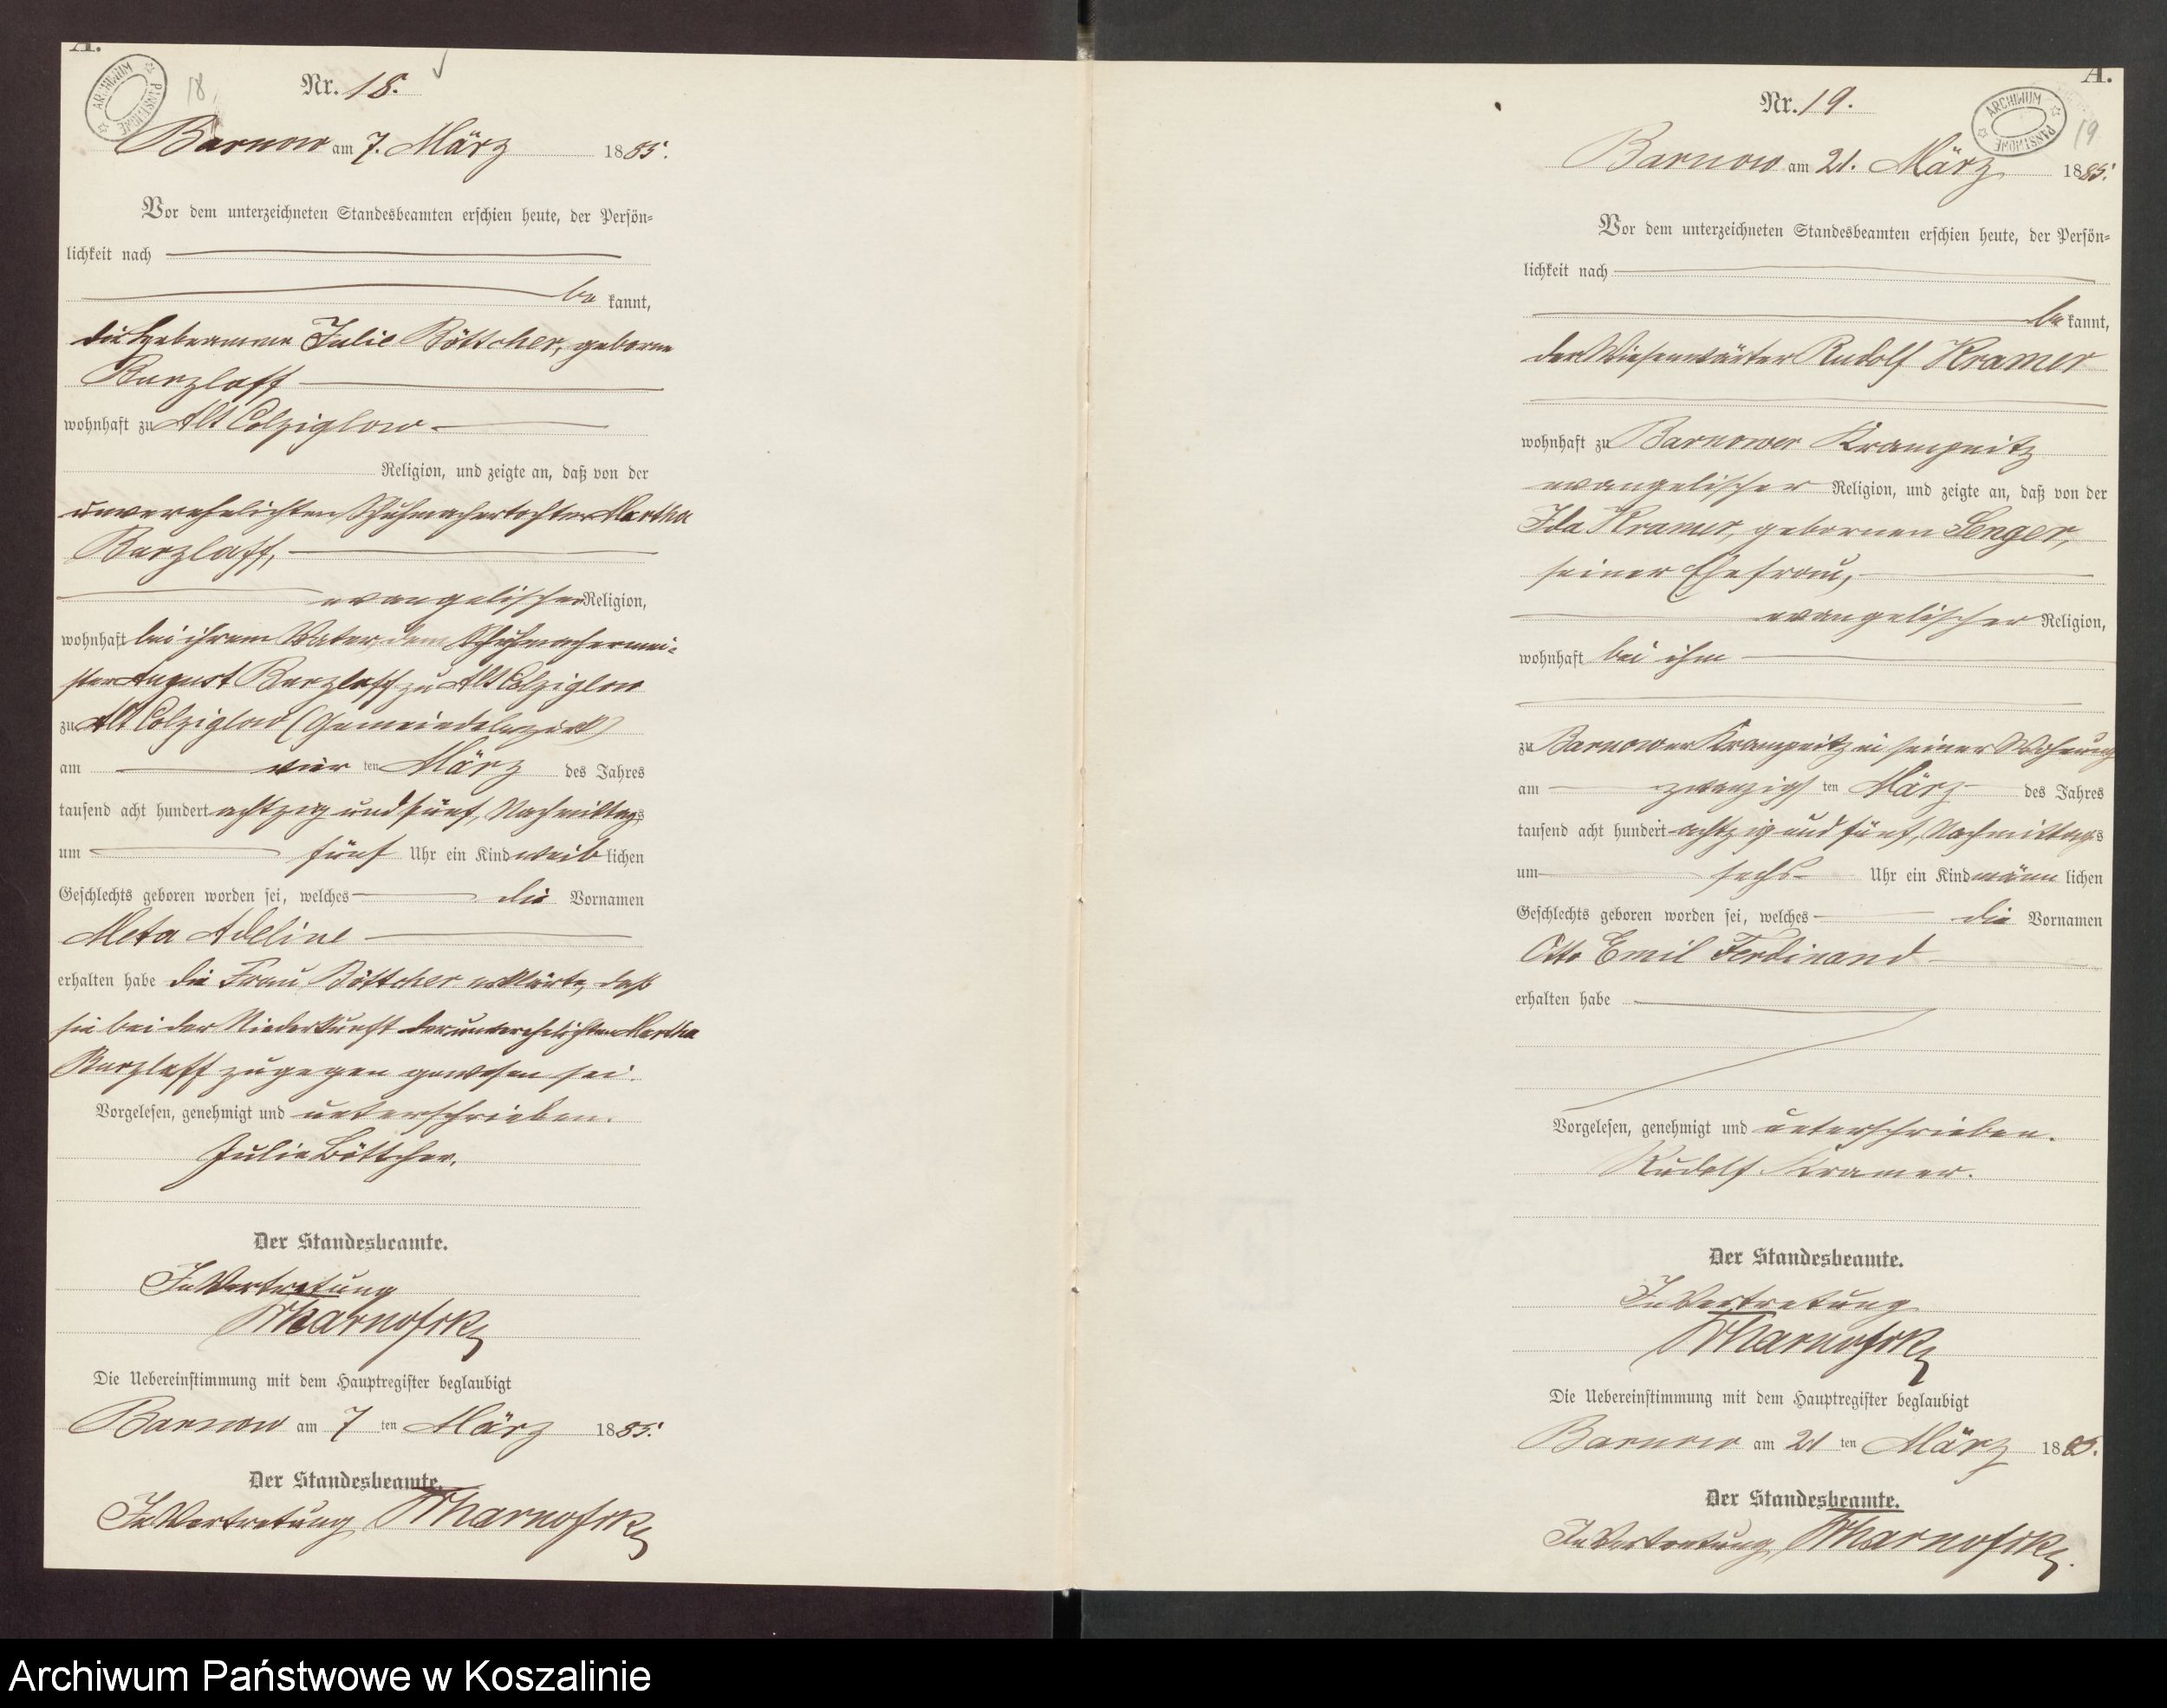 A.
ARCHIWUM PAŃSTWOWE
18
Nr. 18.
Barnow am 7. März 1885.
Vor dem unterzeichneten Standesbeamten erschien heute, der Persön-
lichkeit nach
be kannt,
die Hebeamme Julie Böttcher, geborne
Barzlaff
wohnhaft zu Alt Colziglow
Religion, und zeigte an, daß von der
unverehelichten Schuhmachertochter Martha
Barzlaff,
evangelischer Religion,
wohnhaft bei ihrem Vater, dem Schuhmachermei-
ster August Barzlaff zu Alt Colziglow
zu Alt Colziglow (Gemeindebezirk)
am vier ten März des Jahres
tausend acht hundert achtzig und fünf, Nachmittags
um fünf Uhr ein Kind weib lichen
Geschlechts geboren worden sei, welches die Vornamen
Meta Adeline
erhalten habe die Frau Böttcher erklärte, daß
sie bei der Niederkunft der unverehelichten Martha
Barzlaff zugegen gewesen sei.
Vorgelesen, genehmigt und unterschrieben.
Julie Böttcher.
Der Standesbeamte.
In Vertretung
Die Uebereinstimmung mit dem Hauptregister beglaubigt
Barnow am 7 ten März 1885.
Der Standesbeamte.
In Vertretung
A.
ARCHIWUM PAŃSTWOWE
19
Nr. 19.
Barnow am 21. März 1885.
Vor dem unterzeichneten Standesbeamten erschien heute, der Persön-
lichkeit nach
be kannt,
der Wiesenwärter Rudolf Kramer
wohnhaft zu Barnower Krampnitz
evangelischer Religion, und zeigte an, daß von der
Ida Kramer, gebornen Senger,
seiner Ehefrau,
evangelischer Religion,
wohnhaft bei ihm
zu Barnower Krampnitz in seiner Wohnung
am zwanzigs ten März des Jahres
tausend acht hundert achtzig und fünf, Nachmittags
um sechs Uhr ein Kind männ lichen
Geschlechts geboren worden sei, welches die Vornamen
Otto Emil Ferdinand
erhalten habe
Vorgelesen, genehmigt und unterschrieben.
Rudolf Kramer.
Der Standesbeamte.
In Vertretung
Die Uebereinstimmung mit dem Hauptregister beglaubigt
Barnow am 21 ten März 1885.
Der Standesbeamte.
In Vertretung
Archiwum Państwowe w Koszalinie